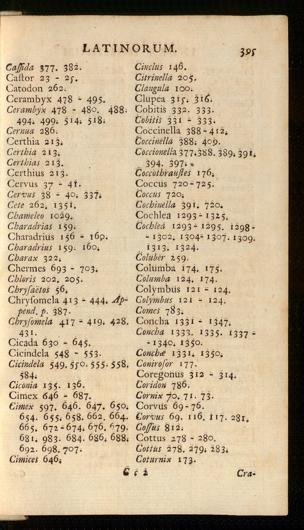 LATINORUM. 395
Caſſida 377. 382.
Caſtor 23 - 25.
Catodon 262.
Cerambyx 478 - 495.
Cerambyx 478 - 480. 488.
494. 499. 514. 518.
Cernua 286.
Certhia 213.
Certhia 213.
Certhias 213.
Certhius 213.
Cervus 37 - 41.
Cervus 38 - 40. 337.
Cete 262. 1351.
Chameleo 1029.
Charadrias 159.
Charadrius 156 - 169.
Charadrius 159. 160.
Charax 322.
Chermes 693 - 703.
Chloris 202. 205.
Chryſaëtos 56.
Chryſomela 413 - 444. Ap-
pend. p. 387.
Chryſomela 417 - 419. 428.
431.
Cicada 630 - 645.
Cicindela 548 - 553.
Cicindela 549. 550. 555. 558.
584.
Ciconia 135. 136.
Cimex 646 - 687.
Cimex 597. 646. 647. 650.
654. 655. 658. 662. 664.
665. 672 - 674. 676. 679.
681. 983. 684. 686. 688.
692. 698. 707.
Cimices 646.
Cinclus 146.
Citrinella 205.
Clangula 100.
Clupea 315. 316.
Cobitis 332. 333.
Cobitis 331 - 333.
Coccinella 388 - 412.
Coccinella 388. 409.
Coccionella 377. 388. 389. 391.
394. 397.
Coccothrauſtes 176.
Coccus 720 - 725.
Coccus 720.
Cochinella 391. 720.
Cochlea 1293 - 1325.
Cochlea 1293 - 1295. 1298-
- 1302. 1304 - 1307. 1309.
1313. 1324.
Coluber 259.
Columba 174. 175.
Columba 124. 174.
Colymbus 121 - 124.
Colymbus 121 - 124.
Comes 783.
Concha 1331 - 1347.
Concha 1333. 1335. 1337 -
- 1340. 1350.
Conchæ 1331. 1350.
Coniroſor 177.
Coregonus 312 - 314.
Coridon 786.
Cornix 70. 71. 73.
Corvus 69 - 76.
Corvus 69. 116. 117. 281.
Coſſus 812.
Cottus 278 - 280.
Cottus 278. 279. 283.
Coturnix 173.
Cra-